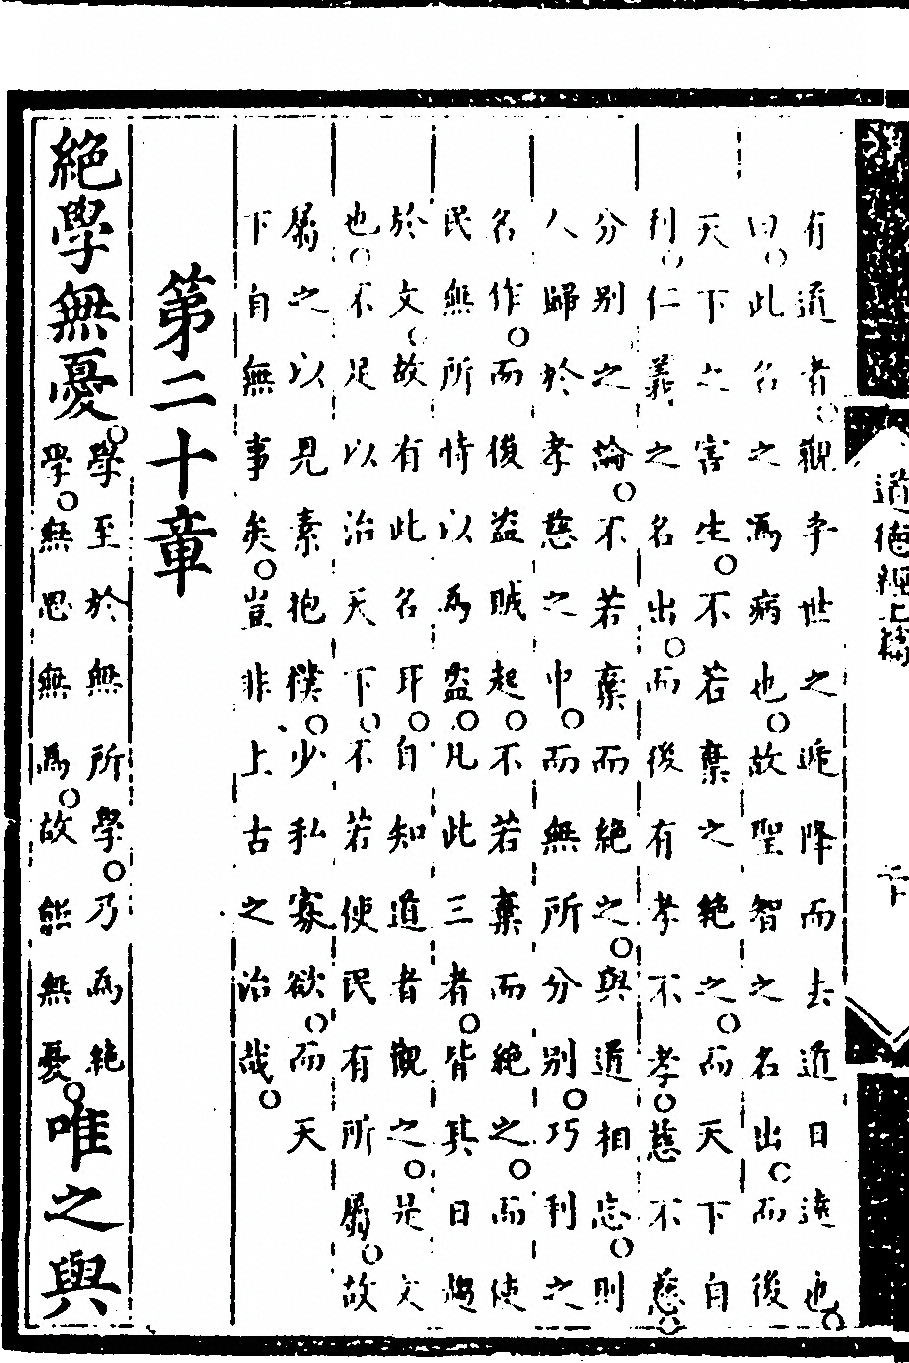 有道者。觀乎世之遞降而去道日遠也。
曰。此名之爲病也。故聖智之名出。而後
天下之害生。不若棄之絶之。而天下自
利。仁義之名出。而後有孝不孝。慈不慈。
分别之論。不若棄而絶之。與道相忘。則
人歸於孝慈之中。而無所分别。巧利之
名作。而後盗賊起。不若棄而絶之。而使
民無所恃以爲盗。凡此三者。皆其日趨
於文。故有此名耳。自知道者觀之。是文
也。不足以治天下。不若使民有所屬。故
屬之以見素抱樸。少私寡欲。而天
下自無事矣。豈非上古之治哉。
第二十章
絶學無憂。學至於無所學。乃爲絶
學。無思無爲。故能無憂。唯之與
道德經上篇